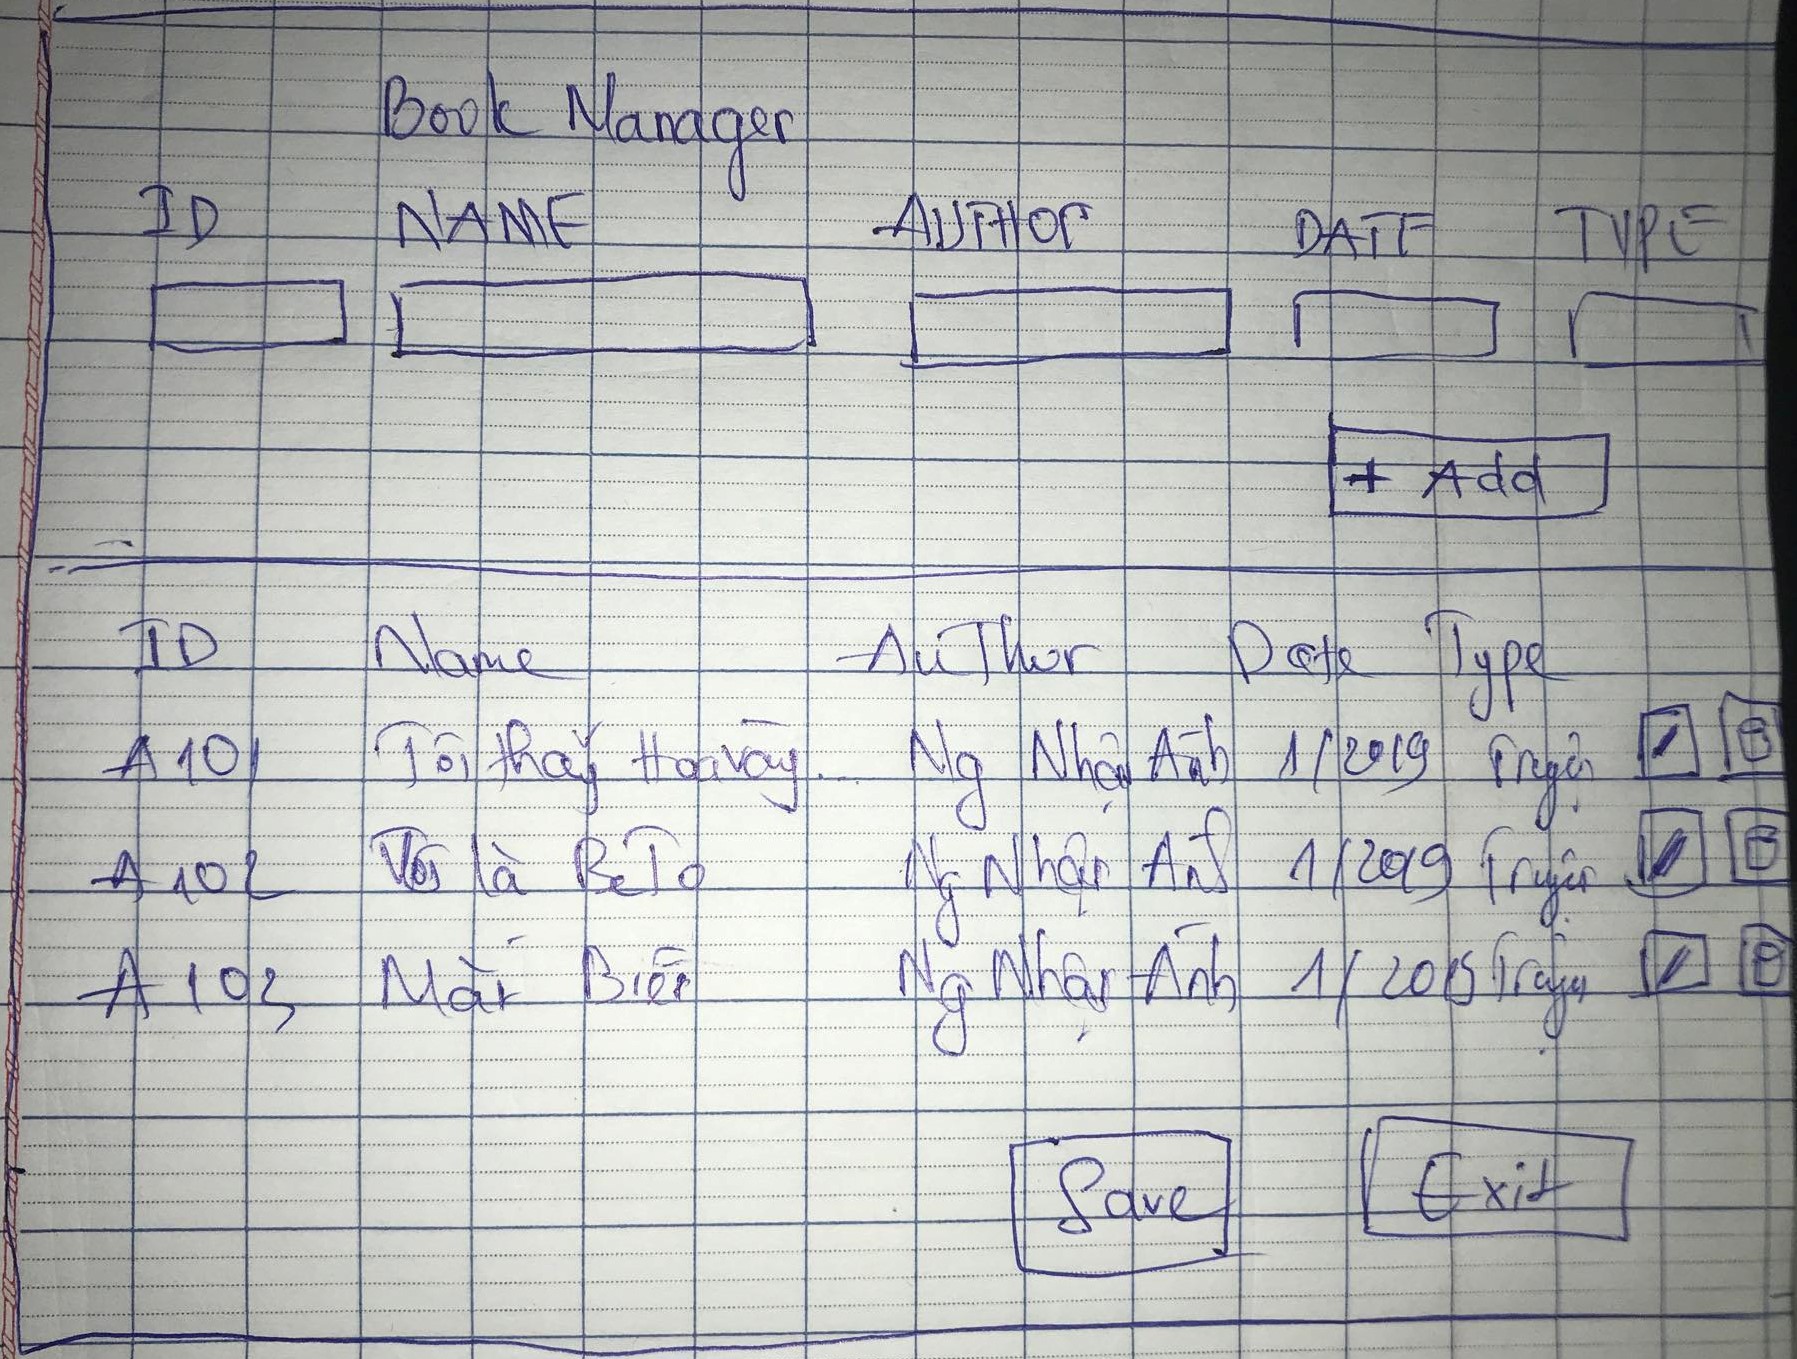 Book Manager
ID NAME AUTHOR DATE TYPE
+ Add
ID Name AuThor Date Type
A101 Tôi thấy Hoa vàng... Ng Nhật Ánh 1/2019 Truyện
A102 Tôi là BêTo Ng Nhật Ánh 1/2019 Truyện
A103 Mắt Biếc Ng Nhật Ánh 1/2015 Truyện
Save Exit